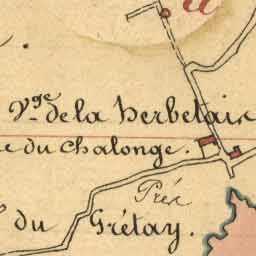 Vge de la Herbelais
du Chalonge.
Prés
du Grétay.